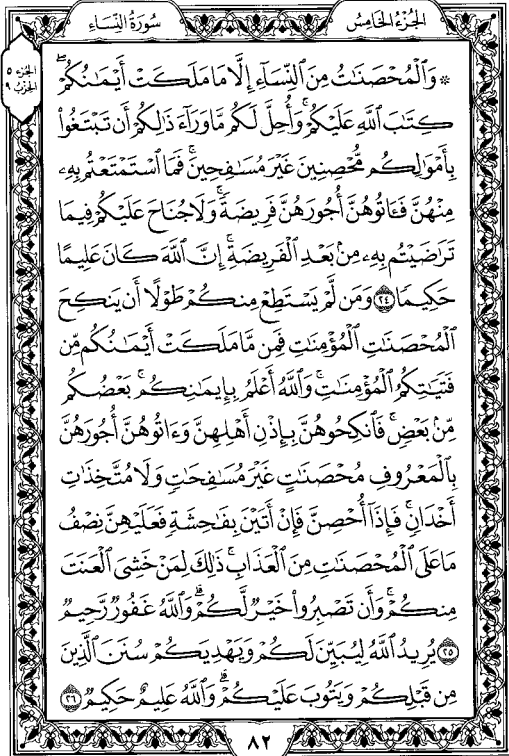 الجُزءُ الخَامِسُ
سُورَةُ النِّسَاءِ
الجزء ٥
الحزب ٩
۞ وَٱلْمُحْصَنَٰتُ مِنَ ٱلنِّسَآءِ إِلَّا مَا مَلَكَتْ أَيْمَٰنُكُمْۖ
كِتَٰبَ ٱللَّهِ عَلَيْكُمْۚ وَأُحِلَّ لَكُم مَّا وَرَآءَ ذَٰلِكُمْ أَن تَبْتَغُوا۟
بِأَمْوَٰلِكُم مُّحْصِنِينَ غَيْرَ مُسَٰفِحِينَۚ فَمَا ٱسْتَمْتَعْتُم بِهِۦ
مِنْهُنَّ فَـَٔاتُوهُنَّ أُجُورَهُنَّ فَرِيضَةًۚ وَلَا جُنَاحَ عَلَيْكُمْ فِيمَا
تَرَٰضَيْتُم بِهِۦ مِنۢ بَعْدِ ٱلْفَرِيضَةِۚ إِنَّ ٱللَّهَ كَانَ عَلِيمًا
حَكِيمًا ٢٤ وَمَن لَّمْ يَسْتَطِعْ مِنكُمْ طَوْلًا أَن يَنكِحَ
ٱلْمُحْصَنَٰتِ ٱلْمُؤْمِنَٰتِ فَمِن مَّا مَلَكَتْ أَيْمَٰنُكُم مِّن
فَتَيَٰتِكُمُ ٱلْمُؤْمِنَٰتِۚ وَٱللَّهُ أَعْلَمُ بِإِيمَٰنِكُمۚ بَعْضُكُم
مِّنۢ بَعْضٍۚ فَٱنكِحُوهُنَّ بِإِذْنِ أَهْلِهِنَّ وَءَاتُوهُنَّ أُجُورَهُنَّ
بِٱلْمَعْرُوفِ مُحْصَنَٰتٍ غَيْرَ مُسَٰفِحَٰتٍ وَلَا مُتَّخِذَٰتِ
أَخْدَانٍۚ فَإِذَآ أُحْصِنَّ فَإِنْ أَتَيْنَ بِفَٰحِشَةٍ فَعَلَيْهِنَّ نِصْفُ
مَا عَلَى ٱلْمُحْصَنَٰتِ مِنَ ٱلْعَذَابِۚ ذَٰلِكَ لِمَنْ خَشِىَ ٱلْعَنَتَ
مِنكُمْۚ وَأَن تَصْبِرُوا۟ خَيْرٌ لَّكُمْۗ وَٱللَّهُ غَفُورٌ رَّحِيمٌ
٢٥ يُرِيدُ ٱللَّهُ لِيُبَيِّنَ لَكُمْ وَيَهْدِيَكُمْ سُنَنَ ٱلَّذِينَ
مِن قَبْلِكُمْ وَيَتُوبَ عَلَيْكُمْۗ وَٱللَّهُ عَلِيمٌ حَكِيمٌ ٢٦
٨٢